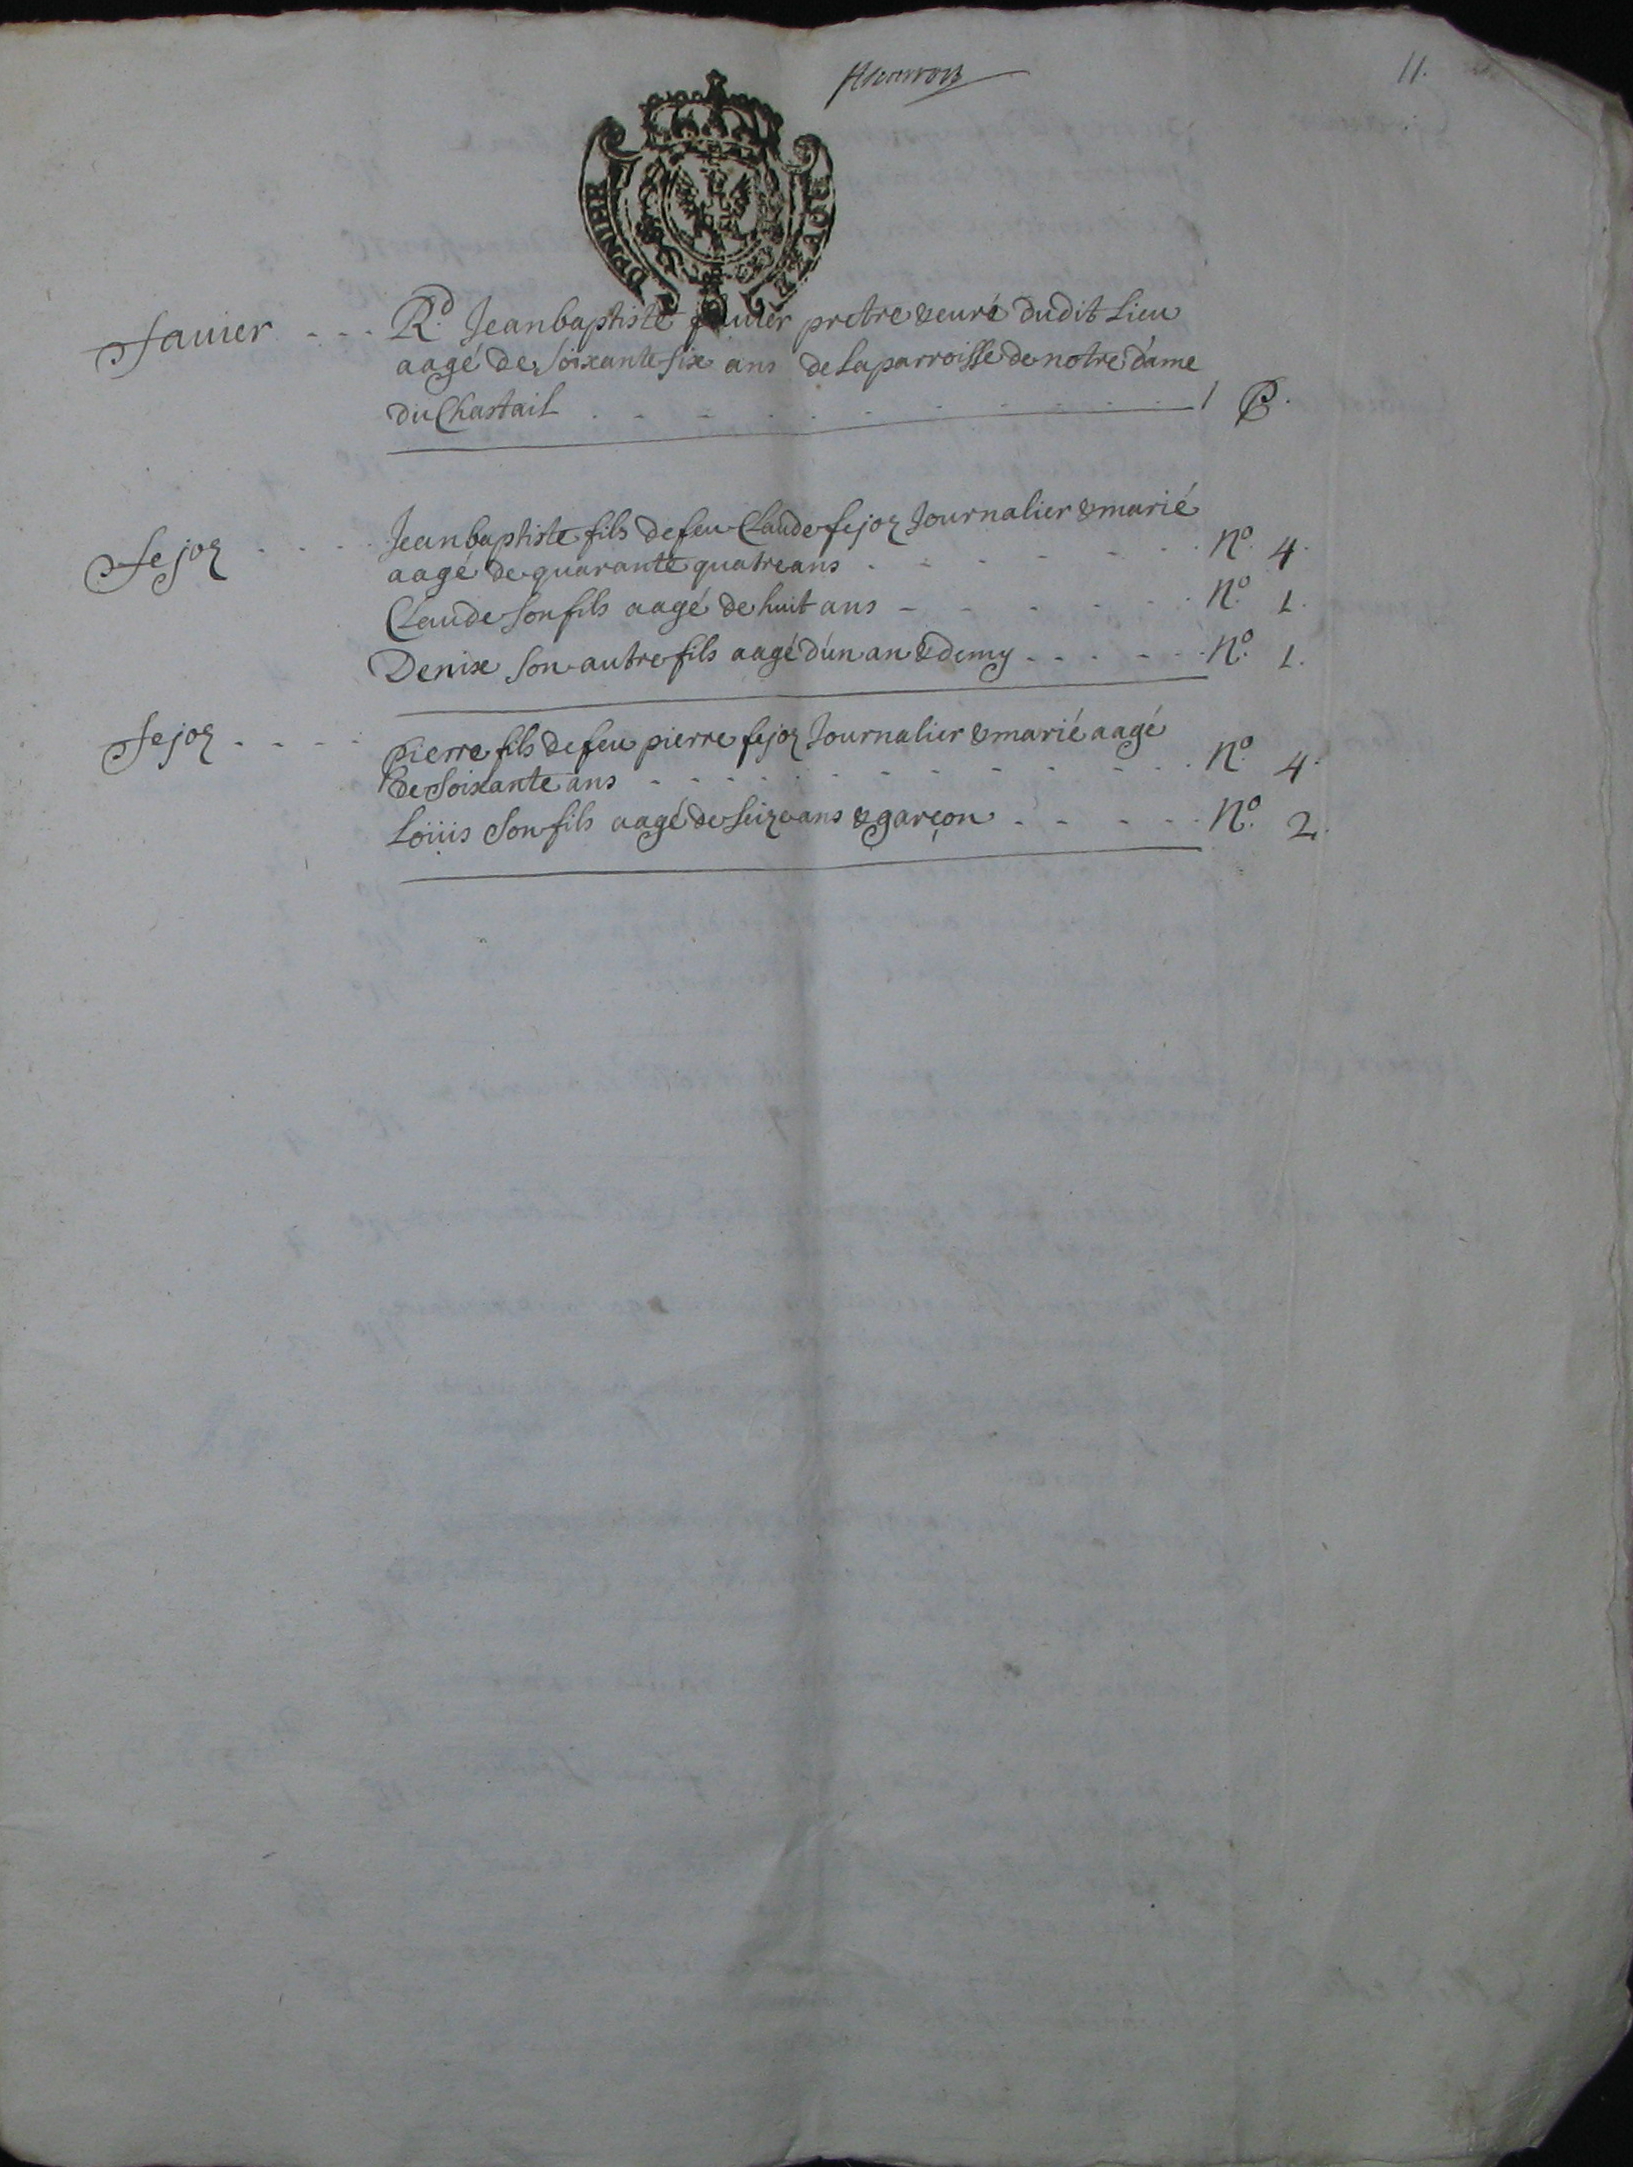 11.
DENIER
fauier - - - R.d Jeanbaptiste fauier pretre & curé dudit Lieu
aagé de soixante six ans de la parroisse de notre dame
du Chastail . - - - - - - - 1 P.
fejoz . . . . Jeanbaptiste fils de feu Claude fejoz Journalier & marié
aagé de quarante quatre ans . - - - - - N.o 4.
Claude son fils aagé de huit ans - - - - - N.o 1.
Denixe son autre fils aagé d'un an & demy - - - - - N.o 1.
fejoz - - - - pierre fils de feu pierre fejoz Journalier & marié aagé
de soixante ans - - - - - - - - - - N.o 4.
Loüis son fils aagé de seize ans & garçon - - - - N.o 2.